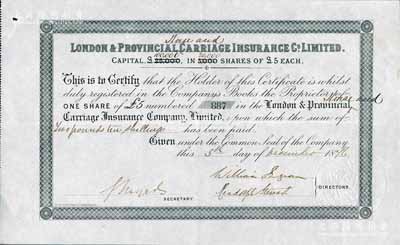 Horse and
LONDON & PROVINCIAL CARRIAGE INSURANCE Co. LIMITED.
CAPITAL £25,000. IN SHARES OF £5 EACH.
This is to Certify that the Holder of this Certificate is whilst
duly registered in the Company's Books the Proprietor of
ONE SHARE of £5 numbered 887 in the London & Provincial Horse and
Carriage Insurance Company, Limited, upon which the sum of
Two pounds ten shillings has been paid.
Given under the Common Seal of the Company
this 5th day of December 187
William
SECRETARY.
DIRECTORS.